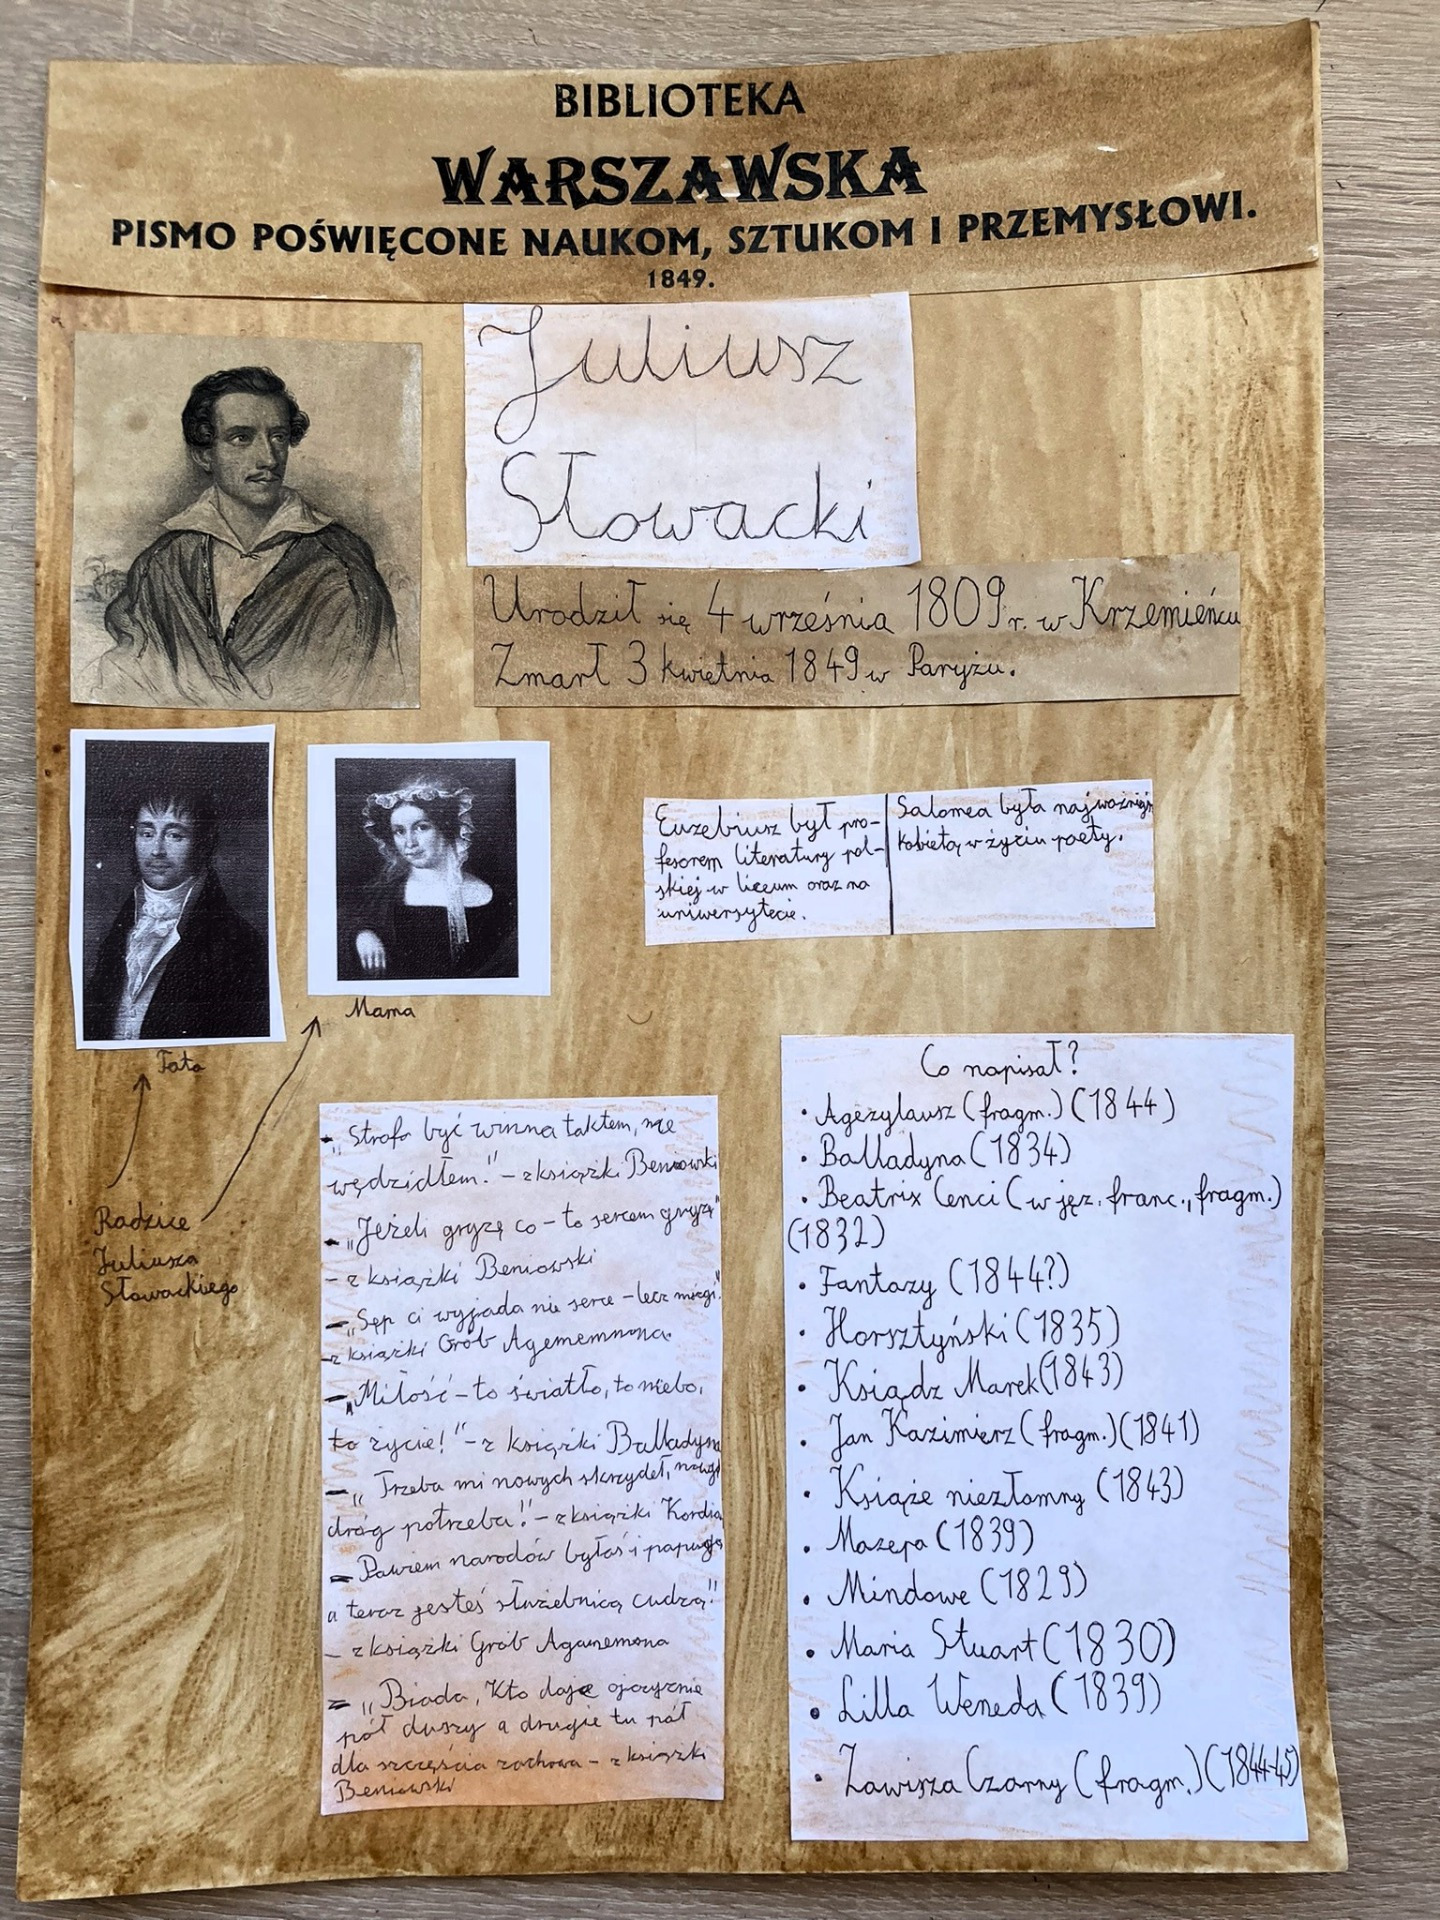 BIBLIOTEKA
WARSZAWSKA
PISMO POŚWIĘCONE NAUKOM, SZTUKOM I PRZEMYSŁOWI.
1849.
Juliusz
Słowacki
Urodził się 4 września 1809r. w Krzemieńcu
Zmarł 3 kwietnia 1849 w Paryżu.
Euzebiusz był pro-
fesorem literatury pol-
skiej w liceum oraz na
uniwersytecie.
Salomea była najważniejs
kobietą w życiu poety.
Tata
Mama
Rodzice
Juliusza
Słowackiego
- „Strofa być winna taktem, nie
wędzidłem." - z książki Beniowski
- „Jeżeli gryzę co - to sercem gryzę"
- z książki Beniowski
- „Sęp ci wyjada nie serce - lecz mózgi."
- z książki Grób Agememnona.
- „Miłość - to światło, to niebo,
to życie!" - z książki Balladyna
- „Trzeba mi nowych skrzydeł, nowych
dróg potrzeba!" - z książki Kordia
- Pawiem narodów byłaś i papugą
a teraz jesteś służebnicą cudzą!"
- z książki Grób Aganemona
- „Biada, kto daje ojczyznie
pół duszy a drugie tu pół
dla szczęścia zachowa - z książki
Beniowski
Co napisał?
• Agezylausz (fragm.) (1844)
• Balladyna (1834)
• Beatrix Cenci (w jęz. franc., fragm.)
(1832)
• Fantazy (1844?)
• Horsztyński (1835)
• Ksiądz Marek (1843)
• Jan Kazimierz (fragm.) (1841)
• Książe niezłomny (1843)
• Mazepa (1839)
• Mindowe (1829)
• Maria Stuart (1830)
• Lilla Weneda (1839)
• Zawisza Czarny (fragm.) (1844-45)